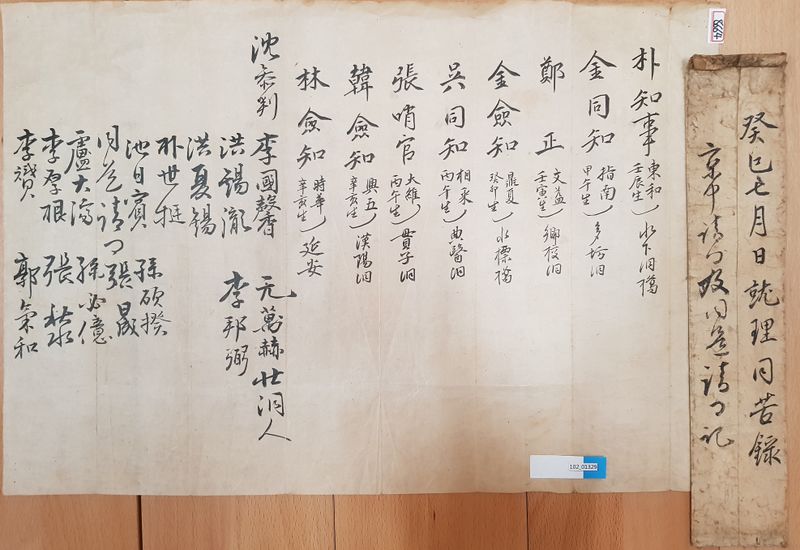 癸巳七月日就理同苦錄
京中請
同還請
記
朴知事 東和 壬辰生 水下洞
金同知 指南 甲午生 洞
鄭 正 文益 壬寅生 鄉校洞
金僉知 鼎夏 癸卯生 水標橋
吳同知 相采 丙午生 典醫洞
張哨官 大維 丙午生 貫子洞
韓僉知 興五 辛亥生 漢陽洞
林僉知 時華 辛亥生 延安
沈參判 李國馨 元萬赫 壯洞人
洪錫瀜 李邦弼
洪夏錫
朴世挺
池日賓 孫碩揆
同還請 張晟
盧大濟 孫必億
李厚根 張
李贇 郭氣和
182_01329